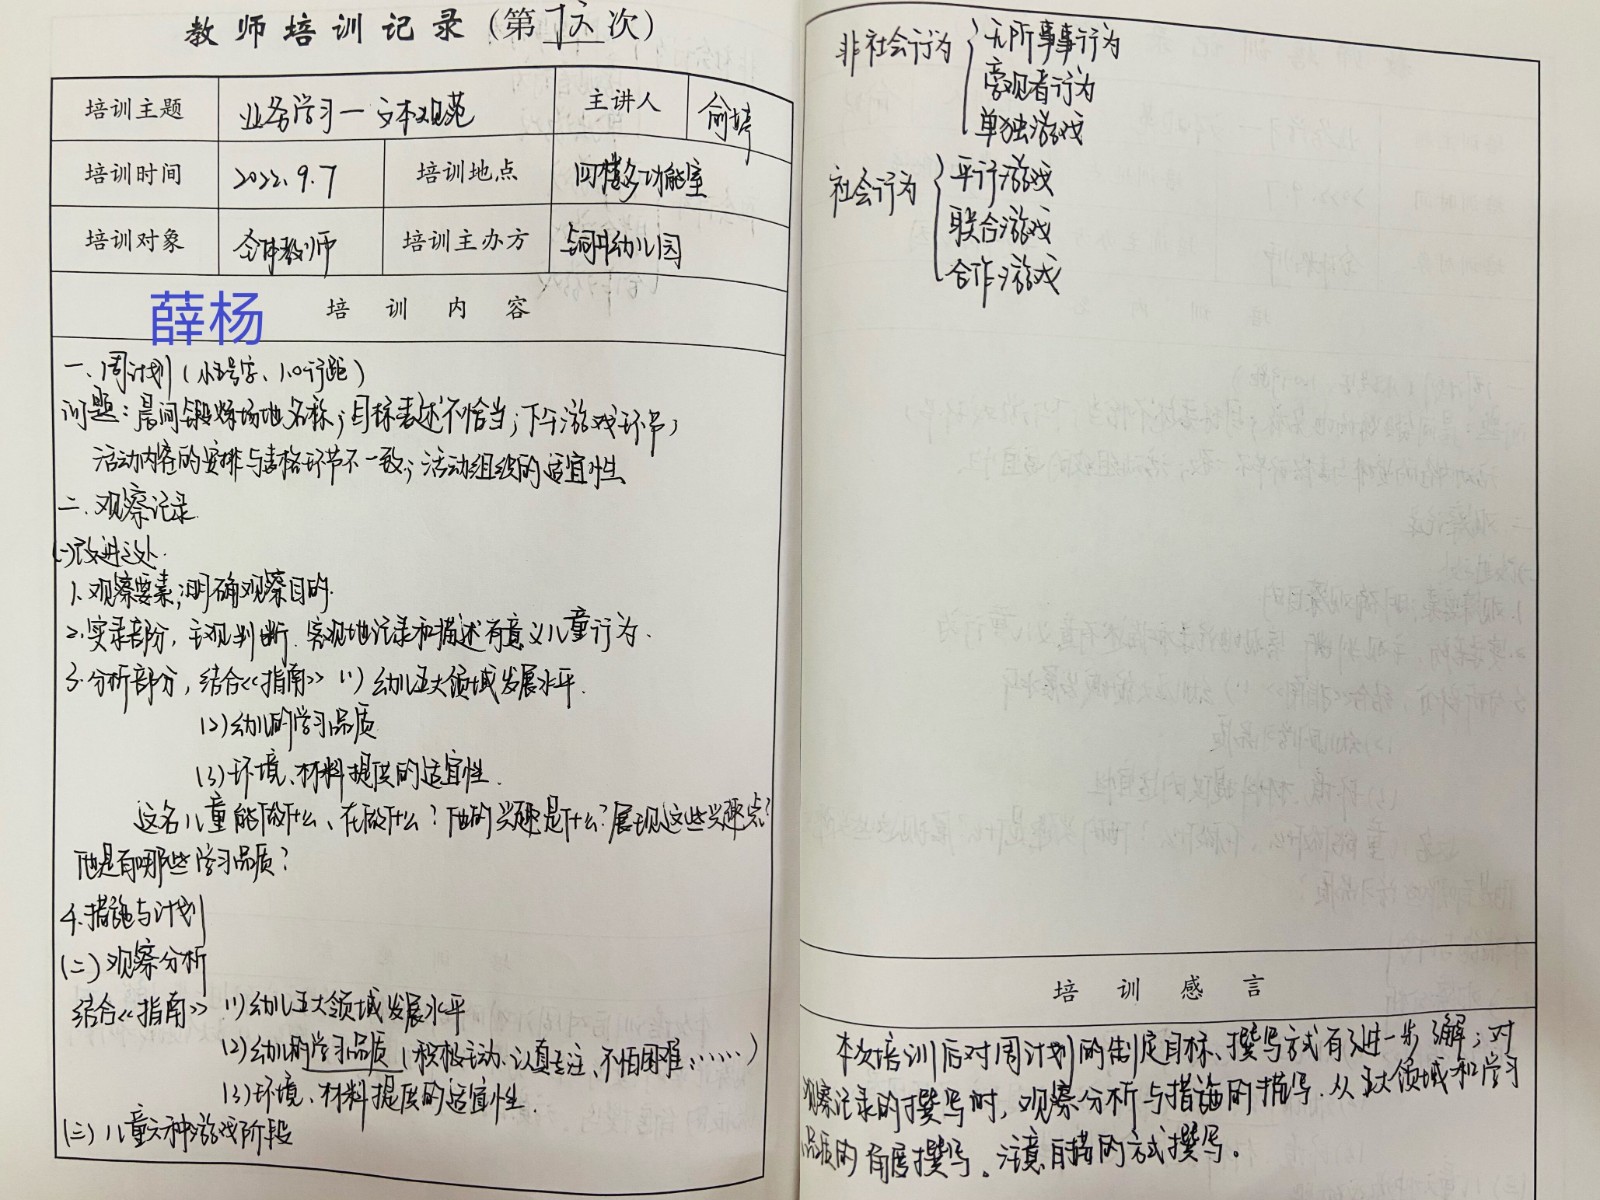 教师培训记录(第十六次)
培训主题 业务学习—文本规范 主讲人 俞婷
培训时间 2022.9.7 培训地点 四楼多功能室
培训对象 全体教师 培训主办方 幼儿园
薛杨
培训内容
一.周计划(小五号字、1.0行距)
问题:晨间锻炼场地名称;目标表述不恰当;下午游戏环节;
活动内容的安排与表格环节不一致;活动组织的适宜性
二.观察记录
(一)改进之处.
1.观察要素;明确观察目的.
2.实录部分,主观判断.客观地记录和描述有意义儿童行为.
3.分析部分,结合《指南》(1)幼儿五大领域发展水平.
(2)幼儿的学习品质
(3)环境、材料提供的适宜性.
这名儿童能做什么、在做什么?他的兴趣是什么?展现这些兴趣点?
他是有哪些学习品质?
4.措施与计划
(二)观察分析
结合《指南》(1)幼儿五大领域发展水平
(2)幼儿的学习品质(积极主动、认真专注、不怕困难……)
(3)环境、材料提供的适宜性.
(三)儿童六种游戏阶段
非社会行为 { 无所事事行为
旁观者行为
单独游戏
社会行为 { 平行游戏
联合游戏
合作游戏
培训感言
本次培训后对周计划的制定目标、撰写方式有了进一步了解;对
观察记录的撰写时,观察分析与措施的描写.从五大领域和学习
品质的角度撰写。注意白描的方式撰写。